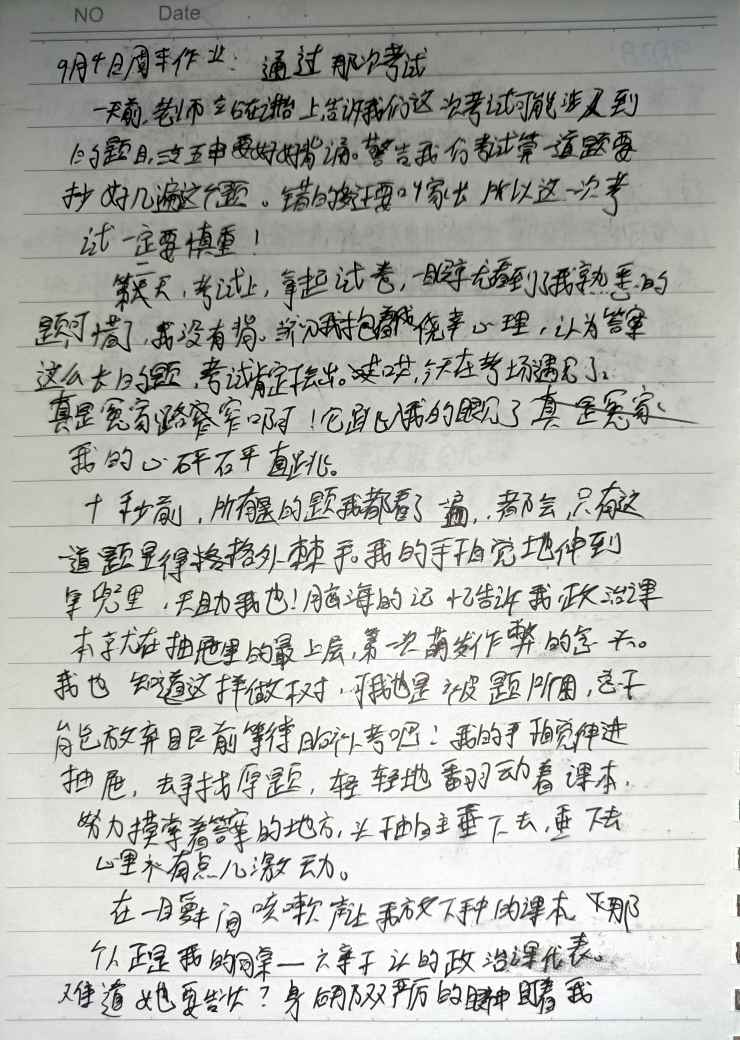 NO Date
9月4日周末作业：通过那次考试
一天前，老师站在讲台上，告诉我们这次考试可能涉及到
的题目，三五申要好好背诵。警告我们考试第一道题要
抄好几遍这个题。错的接还要叫家长 所以这一次考
试一定要慎重！
第二天，考试上，拿起试卷，一眼就看到了我熟悉的
题可慌了，我没有背。当初我抱着侥幸心理，认为答案
这么长的题，考试肯定不会出。哎哟，今天在考场遇见了。
真是冤家路窄啊！它跳入我的眼见了
我的心砰砰直跳。
十秒前，所有的题我都看了遍，都会，只有这
道题显得格外棘手。我的手自觉地伸到
桌兜里，天助我也！脑海的记忆告诉我政治课
本就在抽屉里的最上层，第一次萌发作弊的念头。
我也知道这样做不对，可我也是被题所困，总不
能放弃眼前等待的补考吧？我的手自觉伸进
抽屉，去寻找原题，轻轻地翻动着课本，
努力摸索着答案的地方，头抽自主垂下去，垂下去
心里有点儿激动。
在一瞬间咳嗽声让我放下手中的课本 那
个正是我的同桌一六亲不认的政治课代表。
难道她要告状？身后那双严厉的眼神盯着我